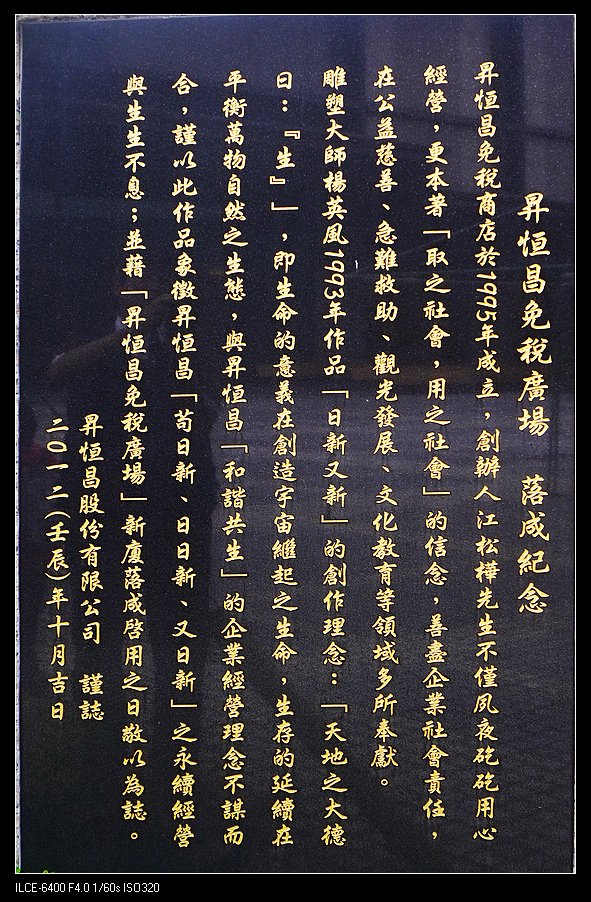 昇恒昌免稅廣場　落成紀念
昇恒昌免稅商店於1995年成立，創辦人江松樺先生不僅夙夜矻矻用心
經營，更本著「取之社會，用之社會」的信念，善盡企業社會責任，
在公益慈善、急難救助、觀光發展、文化教育等領域多所奉獻。
雕塑大師楊英風1993年作品「日新又新」的創作理念：「天地之大德
曰：『生』」，即生命的意義在創造宇宙繼起之生命，生存的延續在
平衡萬物自然之生態，與昇恒昌「和諧共生」的企業經營理念不謀而
合，謹以此作品象徵昇恒昌「苟日新、日日新、又日新」之永續經營
與生生不息；並藉「昇恒昌免稅廣場」新廈落成啓用之日敬以為誌。
昇恒昌股份有限公司　謹誌
二〇一二(壬辰)年十月吉日
ILCE-6400 F4.0 1/60s ISO320